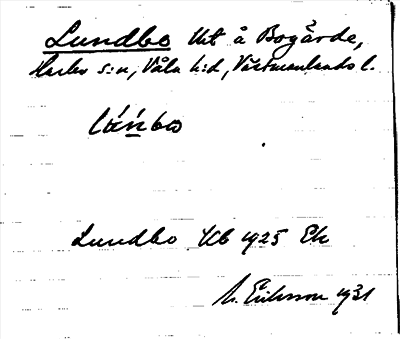 Lundbo Ut å Bogärde,
Harbo s:n, Våla h:d, Västmanlands l.
lúǹbo
Lundbo Kb 1925 Ek
M. Eriksson 1931